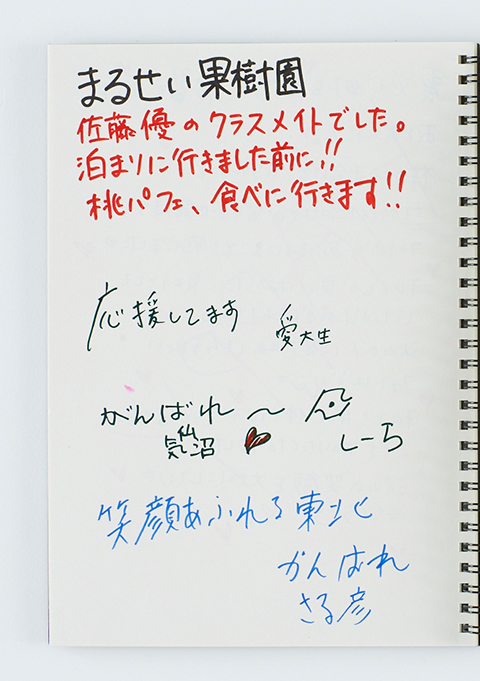 まるせい果樹園
佐藤優のクラスメイトでした。
泊まりに行きました前に!!
桃パフェ、食べに行きます!!
応援してます
愛大生
がんばれ〜
気仙沼
しーち
笑顔あふれる東北
がんばれ
さる彦